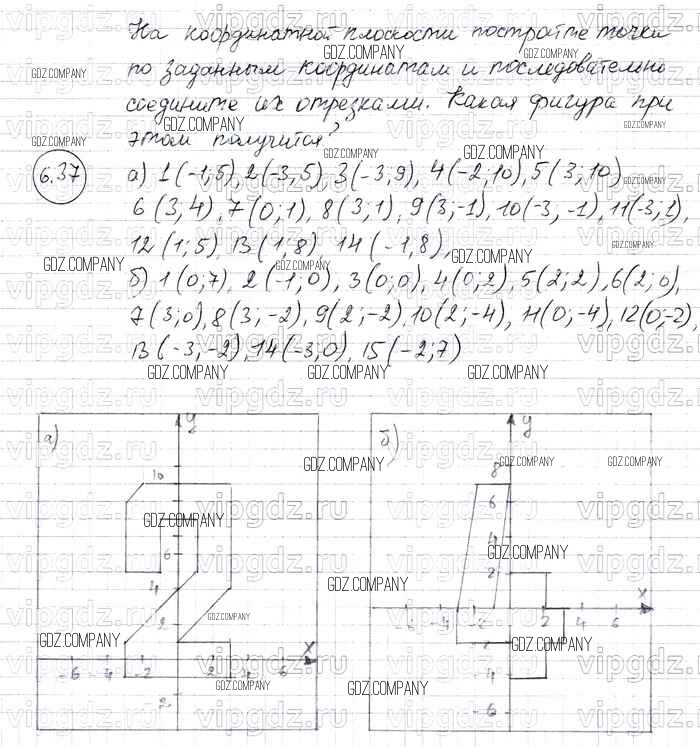 На координатной плоскости постройте точки
по заданным координатам и последовательно
соедините их отрезками. Какая фигура при
этом получится?
6.37
а) 1(-1;5), 2(-3;5), 3(-3;9), 4(-2;10), 5(3;10)
6(3;4), 7(0;1), 8(3;1), 9(3;-1), 10(-3;-1), 11(-3;1),
12(1;5), 13(1;8), 14(-1;8),
б) 1(0;7), 2(-1;0), 3(0;0), 4(0;2), 5(2;2), 6(2;0),
7(3;0), 8(3;-2), 9(2;-2), 10(2;-4), 11(0;-4), 12(0;-2),
13(-3;-2), 14(-3;0), 15(-2;7)
а)
y
10
6
4
2
x
-6 -4 -2 2 4 6
-2
б)
y
8
6
4
2
x
-6 -4 2 4 6
-2
-4
-6
GDZ.COMPANY
vipgdz.ru